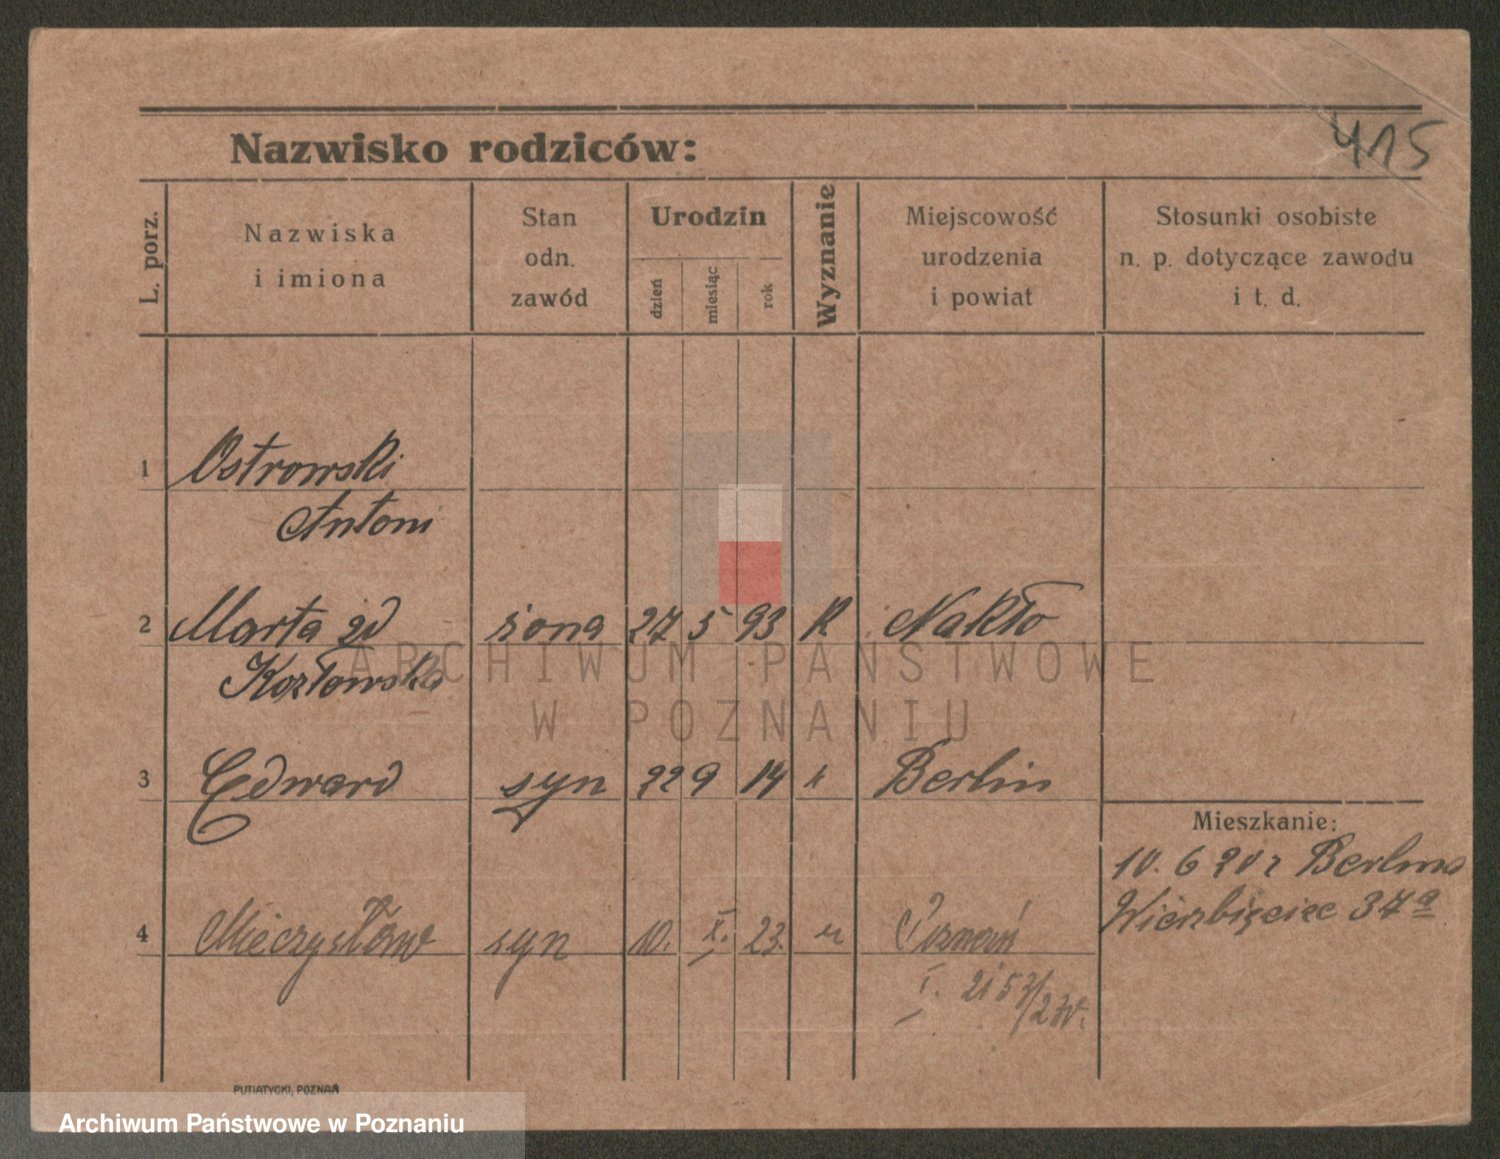 415
Nazwisko rodziców:
L. porz.
Nazwiska
i imiona
Stan
odn.
zawód
Urodzin
dzień
miesiąc
rok
Wyznanie
Miejscowość
urodzenia
i powiat
Stosunki osobiste
n. p. dotyczące zawodu
i t. d.
1 Ostrowski
Antoni
2 Marta zd żona 27 5 93 k Nakło
Kozłowska
ARCHIWUM PAŃSTWOWE
W POZNANIU
3 Edward syn 22 9 14 k Berlin
Mieszkanie:
10. 6 20 r Berlina
Wierzbięcice 37a
4 Mieczysław syn 10. X. 23. Poznań
I.
PUTIATYCKI, POZNAŃ
Archiwum Państwowe w Poznaniu